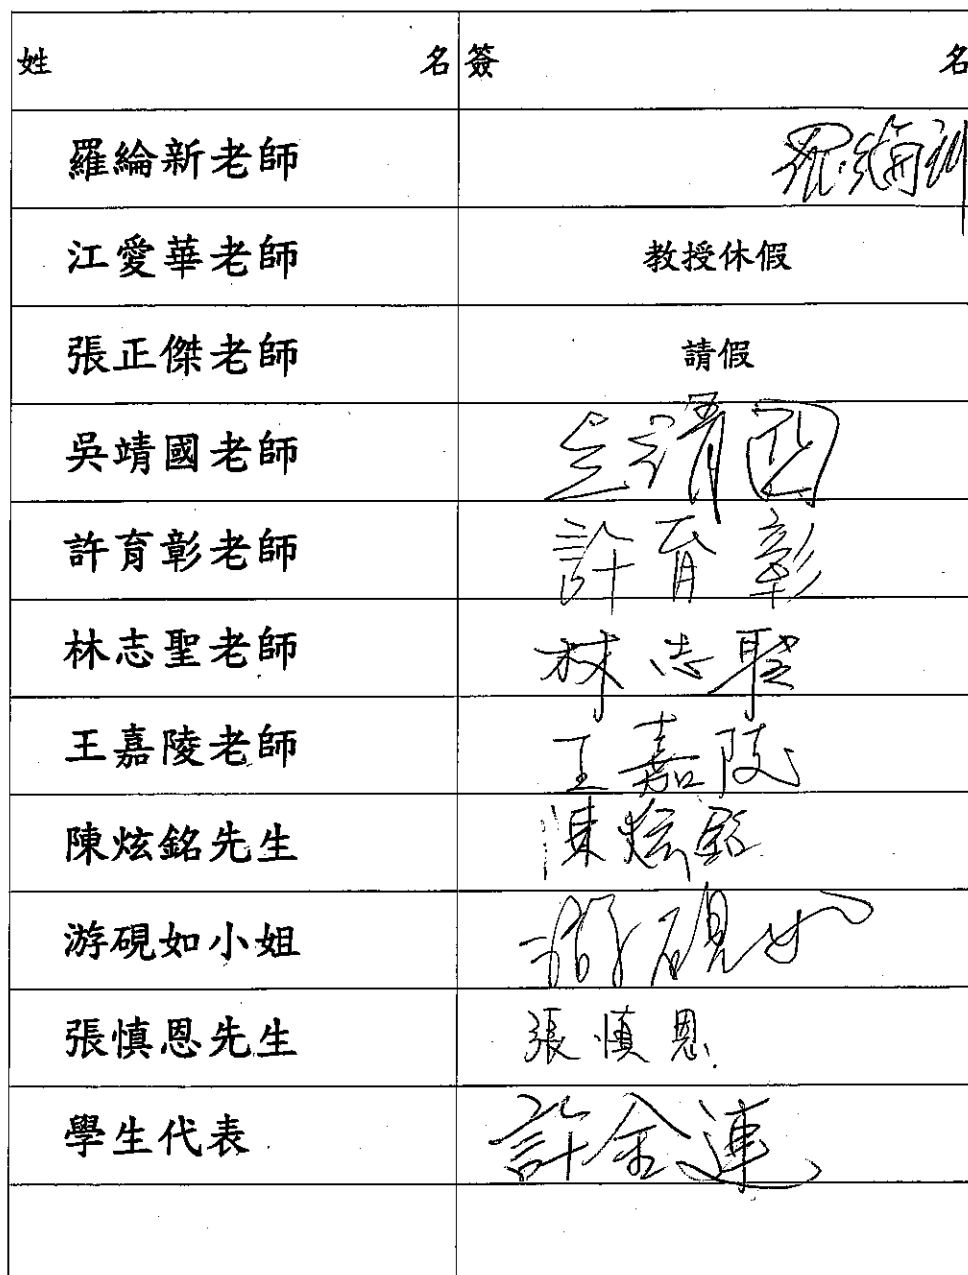 姓名 簽名
羅綸新老師 羅綸新
江愛華老師 教授休假
張正傑老師 請假
吳靖國老師 吳靖国
許育彰老師 許育彰
林志聖老師 林志聖
王嘉陵老師 王嘉陵
陳炫銘先生 陳炫銘
游硯如小姐 游硯如
張慎恩先生 張慎恩
學生代表 許金連